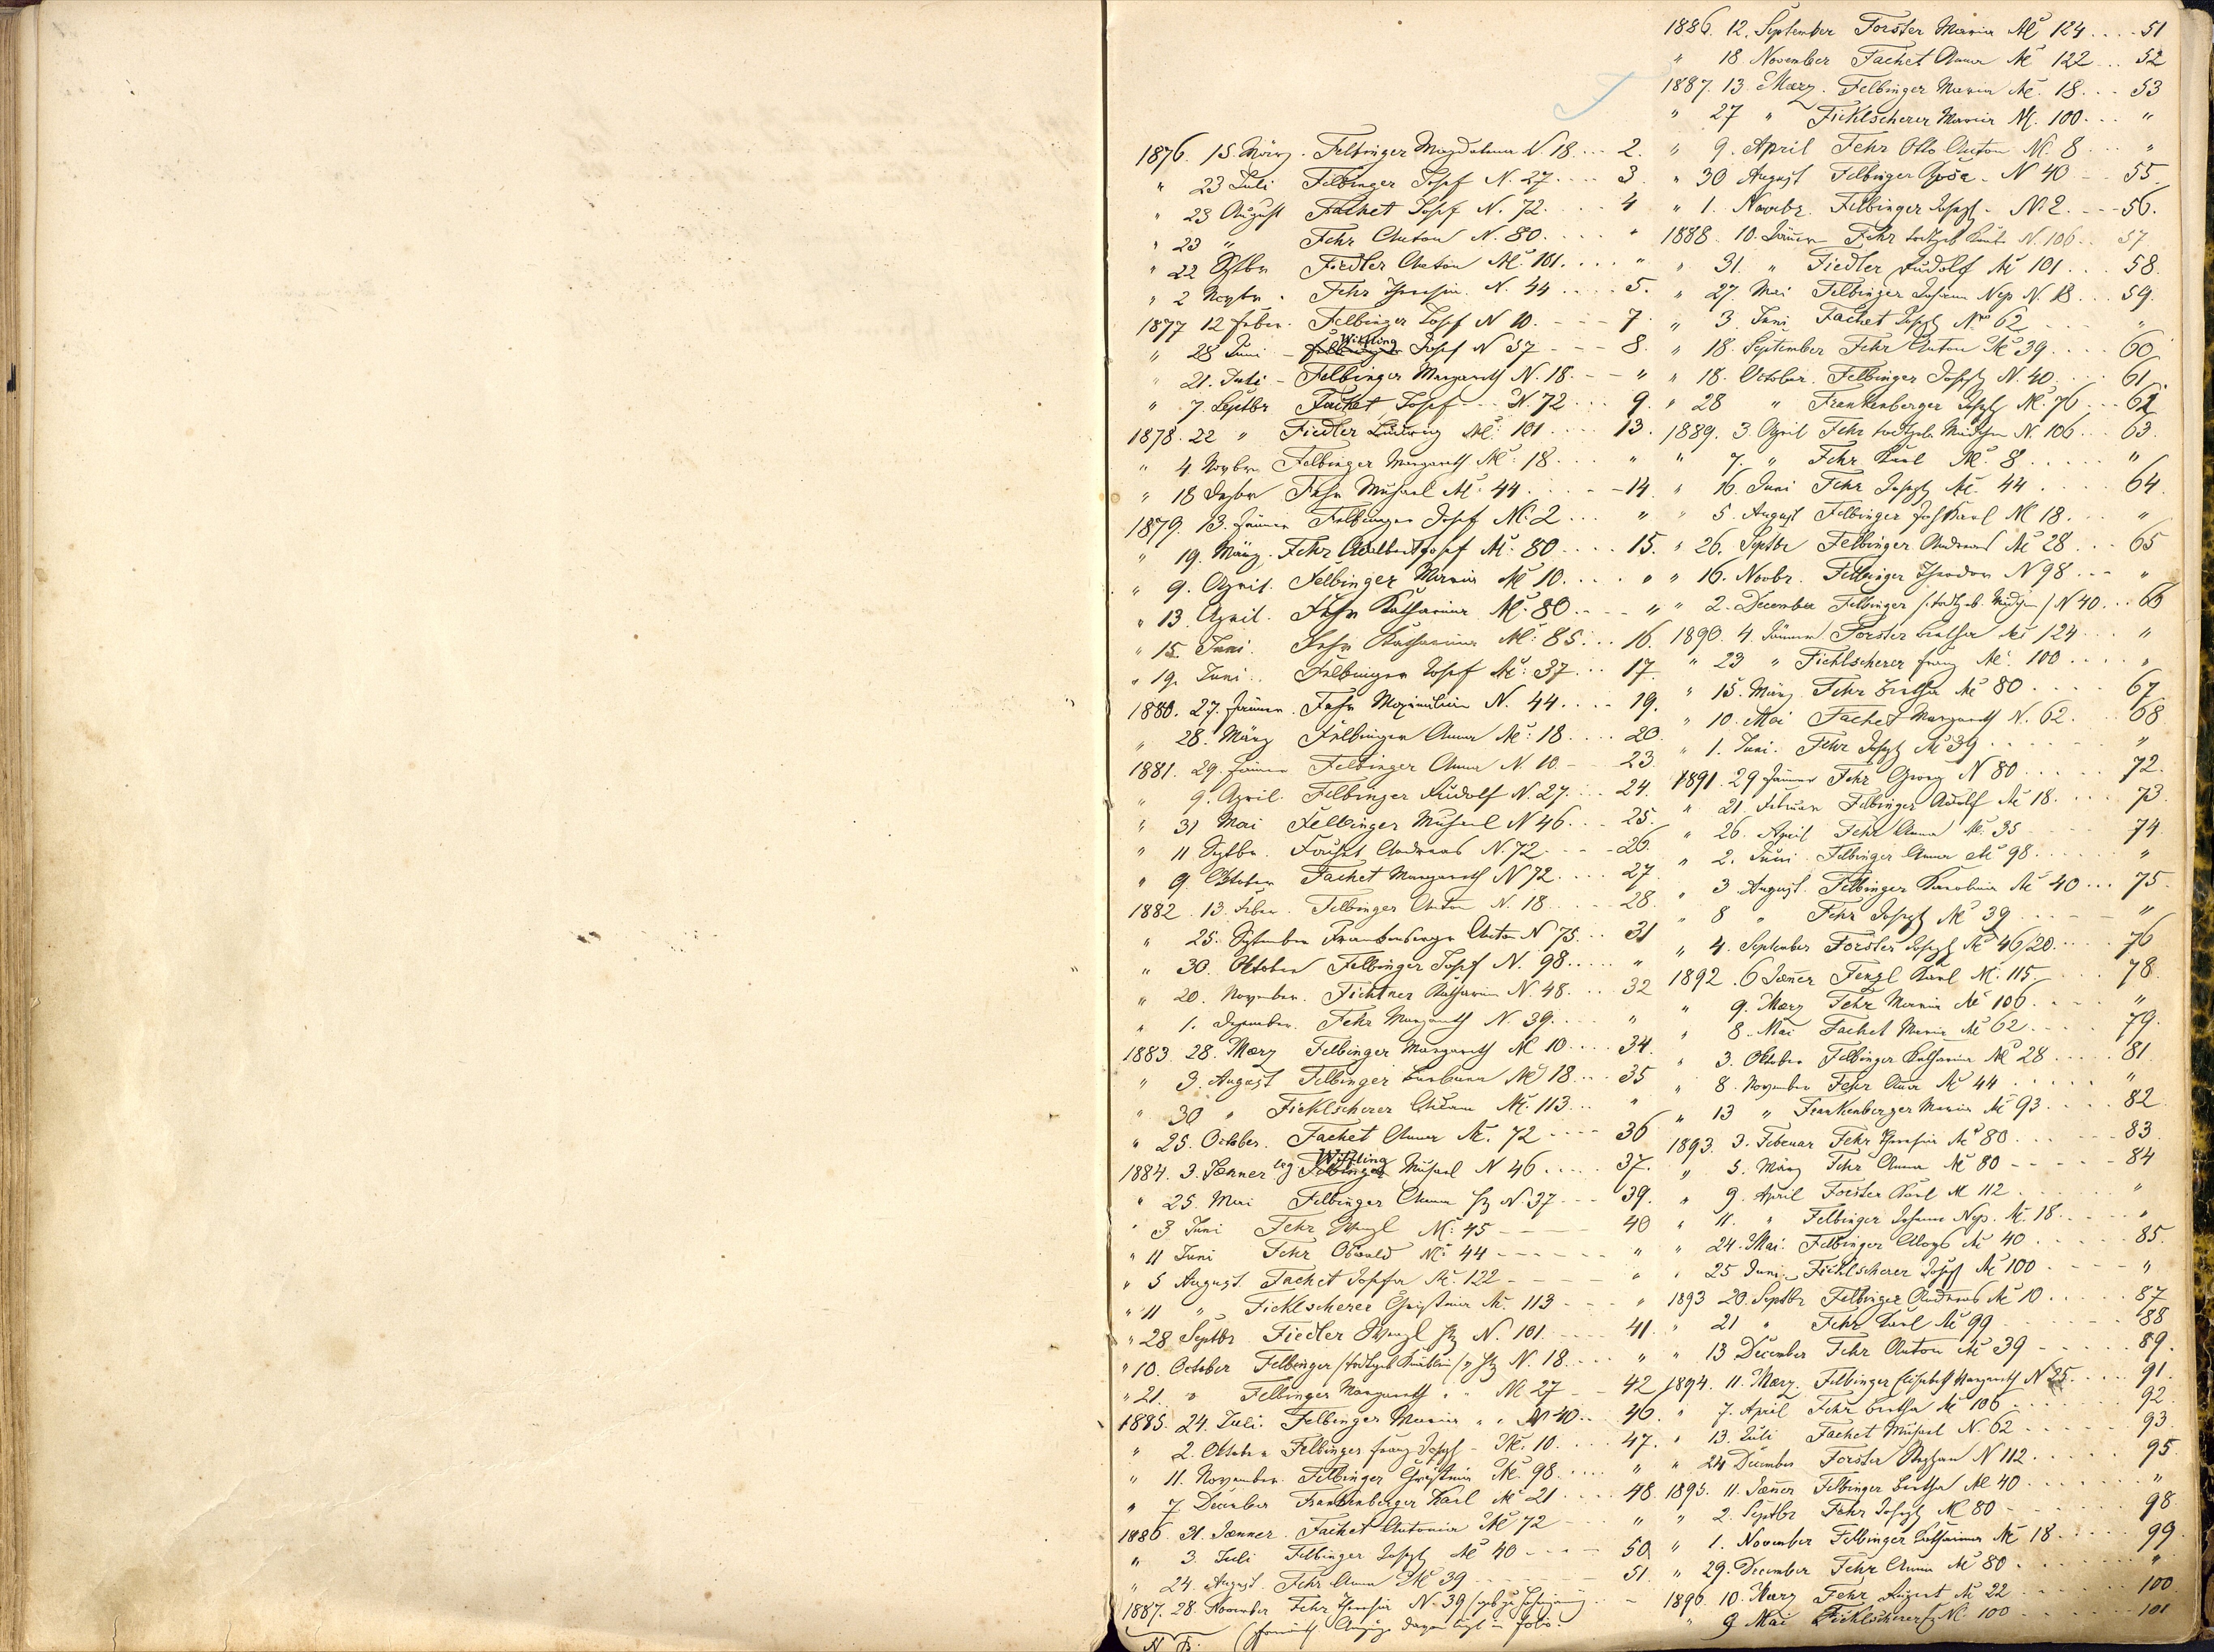 F
1876. 15. März. Felbinger Magdalena N. 18 ... 2.
" 23 Juli Felbinger Josef N. 27 .... 3.
" 23 August Fachet Josef N. 72 .... 4
" 23 " Fehr Anton N. 80 .... "
" 22 Sptbr Fiedler Anton N: 101 .... "
" 2 Novbr. Fehr Theresia N. 44 .... 5.
1877 12 Feber. Felbinger Josef N 10. --- 7.
" 28 Juni - Wiffling Josef N 37 --- 8.
" 21. Juli - Felbinger Margareth N. 18. -- "
" 7. Septbr Fachet Josef -- N. 72 ... 9.
1878. 22 " Fiedler Ludwig N: 101 .... 13.
" 4. Novbr. Felbinger Margareth N: 18 ... "
" 18 Dezbr Fehr Michael N: 44 .... 14.
1879. 13. Jänner Felbinger Josef N: 2 ... "
" 19. März. Fehr Adalbert Josef N: 80 .... 15.
" 9. April. Felbinger Maria N 10. .... "
" 13. April. Fehr Katharina N: 80 .... "
" 15. Juni. Fehr Katharina N: 85 ... 16.
" 19. Juni. Felbinger Josef N: 37 ... 17.
1880. 27. Jänner. Fehr Maximilian N. 44 .... 19.
" 28. März Felbinger Anna N: 18 .... 20.
1881. 29. Jänner Felbinger Anna N. 10 -- 23.
" 9. April. Felbinger Rudolf N. 27. ... 24.
" 31 Mai Felbinger Michael N 46 ... 25.
" 11 Septbr. Fachet Andreas N. 72 ---- 26.
" 9. Oktober Fachet Margareth N 72 .... 27.
1882. 13. Feber. Felbinger Anton N. 18 .... 28.
" 25. September Frankenberger Anton N 75 ... 31
" 30. Oktober Felbinger Josef N. 98 .... "
" 20. November. Fichtner Katharina N. 48. ... 32
" 1. Dezember. Fehr Margareth N. 39. ... "
1883. 28. Maerz Felbinger Margareth N 10 .... 34.
" 3. August Felbinger Barbara N 18 ... 35
" 30 " Ficklscherer Adam N. 113 ... "
" 25. October. Fachet Anna N. 72 ---- 36
1884. 3. Jaenner leg Felbinger Wiffling Michael N 46 .... 37.
" 25. Mai Felbinger Anna hz N. 37 --- 39.
" 3 Juni Fehr Wenzl N: 45 ---- 40
" 11 Juni Fehr Oswald N: 44 ---- "
" 5 August. Fachet Josefa N. 122 ---- "
" 11 " Ficklscherer Christina N. 113 --- "
" 28 Septbr Fiedler Wenzl hz N. 101. --- 41.
" 10. October Felbinger /todtgeb Knäblein/ hz N. 18. ... "
" 21. " Felbinger Margareth " " N 27 -- 42
1885. 24. Juli. Felbinger Maria " " N 40 .. 46.
" 2. Oktober Felbinger Franz Josef - N. 10. ... 47.
" 11. November. Felbinger Christina N. 98 .... "
" 7. December Frankenberger Karl N 21 .... 48.
1886. 31. Jaenner. Fachet Antonia N 72 --- "
" 3. Juli Felbinger Josef N 40 ---- 50.
" 24. August. Fehr Anna N 39 ------ 51.
1887. 28. November Fehr Theresia N. 39
N B.
1886. 12. September Forster Maria N 124 .... 51
" 18. November Fachet Anna N 122 ... 52
1887. 13. Maerz. Felbinger Maria N. 18 ... 53
" 27 " Ficklscherer Maria N. 100 ... "
" 9. April Fehr Otto Anton N. 8 ... "
" 30 August Felbinger Rosa - N 40 -- 55.
" 1. Novebr. Felbinger Josef - N 2. --- 56.
1888. 10. Jänner Fehr todtgeb Knabe N. 106 .. 57
" 31. " Fiedler Rudolf N 101 ... 58.
" 27. Mai Felbinger Johann Nep N. 18 ... 59.
" 3. Juni Fachet Josef Nro 62 ---- "
" 18. September Fehr Anton N 39 .... 60.
" 18. October. Felbinger Josef N. 40. ... 61.
" 28 " Frankenberger Josef N. 76 --- 62
1889. 3. April Fehr todtgeb. Mädchen N. 106 ... 63.
" 7. " Fehr Karl N. 8 ..... "
" 16. Juni Fehr Josef N. 44 .... 64.
" 5. August Felbinger Jos Karl N 18. ... "
" 26. Septbr Felbinger Andreas N 28 ... 65
" 16. Novbr. Felbinger Theodor N 98 --- "
" 2. December Felbinger /todtgeb. Mädchen/ N 40 ... 66
1890. 4. Jänner Forster Bertha N 124 ... "
" 23 " Ficklscherer Franz N. 100 .... "
" 15. März. Fehr Bertha N 80 .... 67
" 10. Mai Fachet Margareth N. 62. ... 68
" 1. Juni. Fehr Josef N 39 ..... "
1891. 29 Jänner Fehr Georg N 80 ..... 72.
" 21. Februar Felbinger Adolf N 18. .... 73.
" 26. April Fehr Anna N. 35 ---- 74.
" 2. Juni Felbinger Anna N 98 ..... "
" 3 August. Felbinger Karolina N 40 ... 75.
" 8 " Fehr Josef N 39 ..... "
" 4. September Forster Josef N 46/20. .... 76
1892. 6 Jaener Fenzl Karl N. 115. .... 78.
" 9. Maerz Fehr Maria N 106 .... "
" 8. Mai Fachet Maria N 62 .... 79.
" 3. Oktober Felbinger Katharina N 28 ..... 81
" 8. November Fehr Anna N 44 ..... "
" 13 " Frankenberger Maria N 93 .... 82
1893. 3. Februar Fehr Theresia N 80 ..... 83.
" 5. März Fehr Anna N 80 ----- 84
" 9. April Forster Karl N 112 ..... "
" 11. " Felbinger Johann Nep. N. 18 ..... "
" 24. Mai. Felbinger Aloys N 40 ..... 85.
" 25 Juni Ficklscherer Josef N 100 ---- "
1893 20. Septbr Felbinger Andreas N 10 ..... 87
" 21 " Fehr Karl N 99 ------ 88
" 13 December Fehr Anton N 39 ----- 89.
1894. 11. Maerz. Felbinger Elisabeth Margareth N 25. .... 91.
" 7. April Fehr Bertha N 106 ------ 92
" 13. Juli Fachet Michael N. 62 ----- 93
" 24 December Forster Stephan N 112. .... 95
1895. 11. Jaener Felbinger Bertha N 40 ..... "
" 2. Septbr Fehr Josef N 80 ------ 98
" 1. November Felbinger Katharina N 18 ..... 99
" 29. December Fehr Anna N 80 ..... "
1896. 10. Maerz Fehr August N 22 ------ 100.
" 9 Mai Ficklscherer N. 100 ------ 101